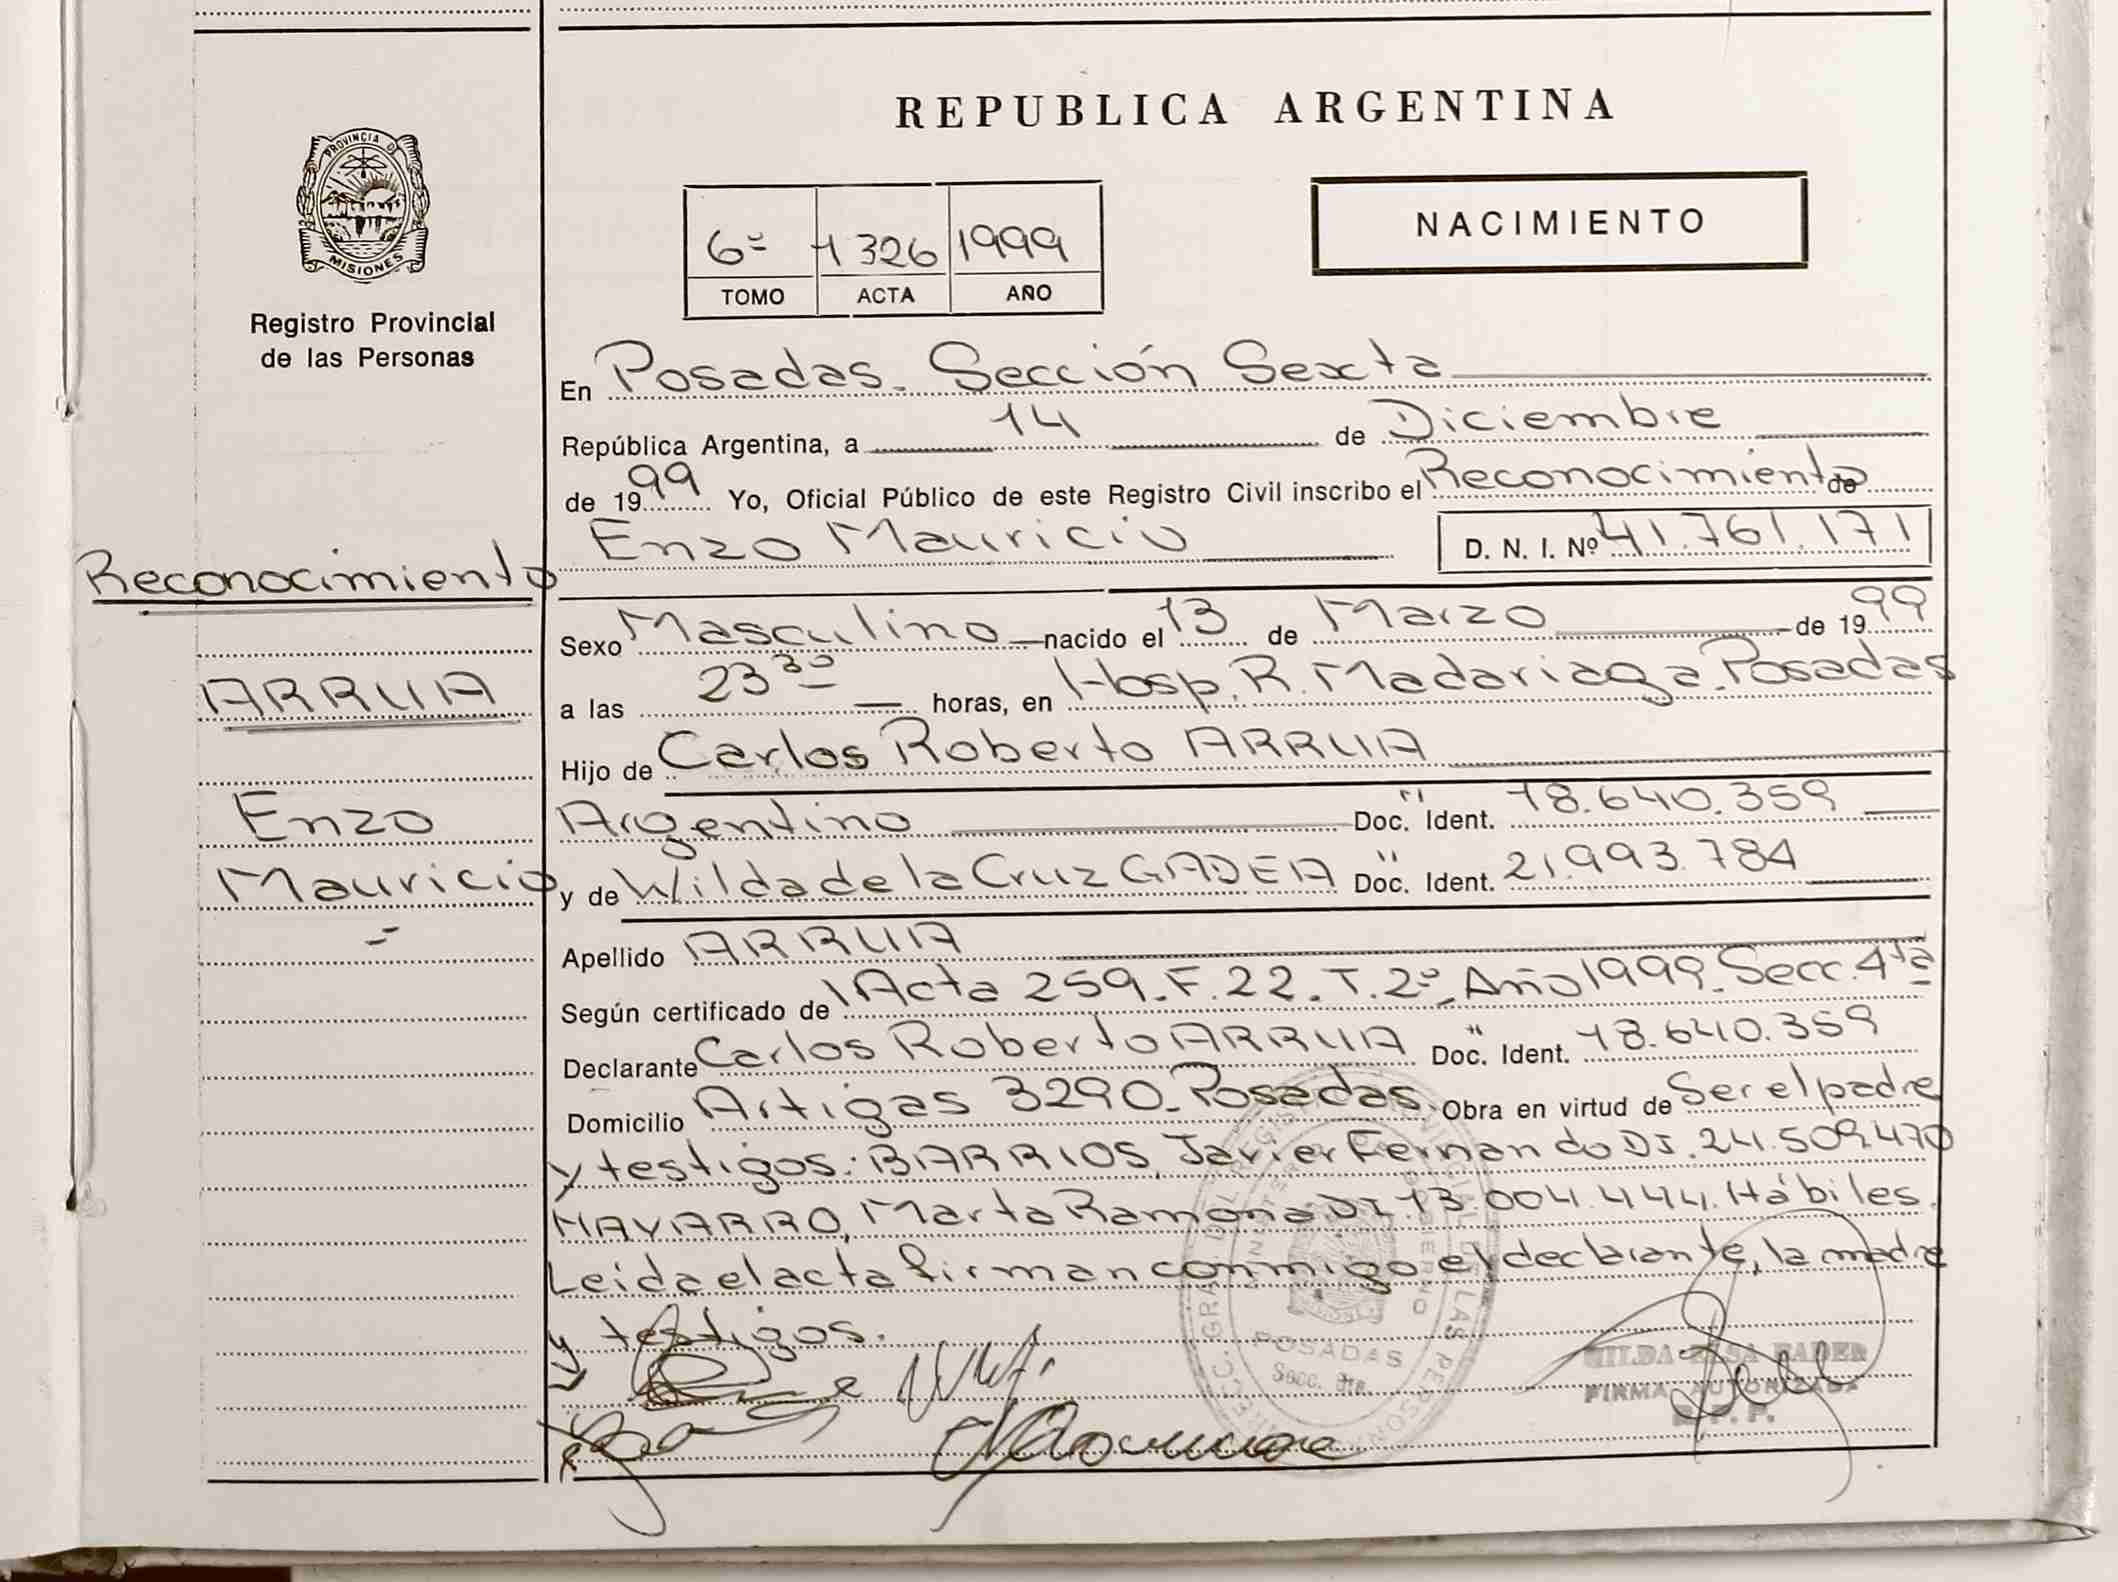 REPUBLICA ARGENTINA
PROVINCIA DE
MISIONES
Registro Provincial
de las Personas
6º 1326 1999
TOMO ACTA AÑO
NACIMIENTO
En Posadas. Sección Sexta
República Argentina, a 14 de Diciembre
de 1999 Yo, Oficial Público de este Registro Civil inscribo el Reconocimiento de
Enzo Mauricio D. N. I. Nº 41.761.171
Reconocimiento
ARRUA
Enzo
Mauricio
Sexo Masculino nacido el 13 de Marzo de 1999
a las 23 30 horas, en Hosp. R. Madariaga. Posadas
Hijo de Carlos Roberto ARRUA
Argentino Doc. " Ident. 18.640.359
y de Wilda de la Cruz GADEA Doc. " Ident. 21.993.784
Apellido ARRUA
Según certificado de Acta 259. F. 22. T. 2º. Año 1999. Secc. 4ta
Declarante Carlos Roberto ARRUA Doc. " Ident. 18.640.359
Domicilio Artigas 3290. Posadas. Obra en virtud de Ser el padre
y testigos: BARRIOS, Javier Fernando DI. 24.509.470
NAVARRO, Marta Ramona DI. 13.004.444. Hábiles.
Leida el acta firman conmigo el declarante, la madre
y testigos.
POSADAS
Secc. 6ta.
ELSA BADER
FIRMA AUTORIZADA
R. P. P.